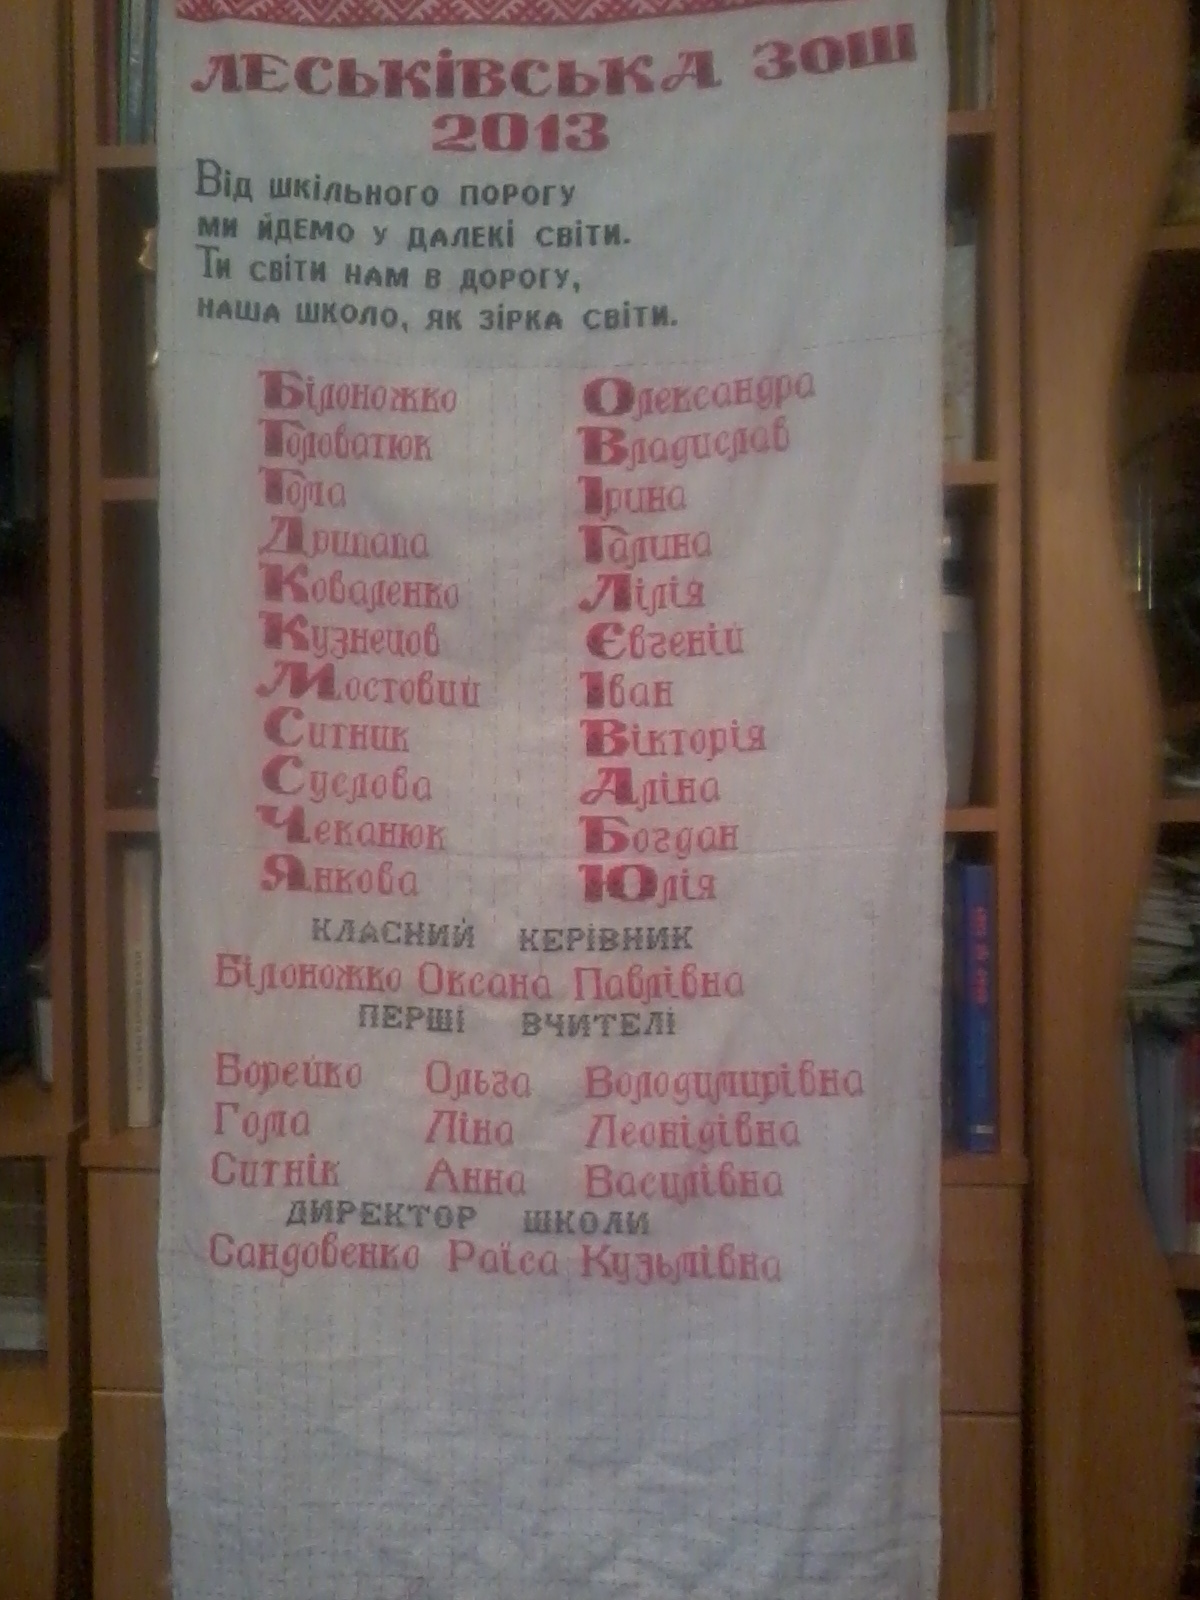 ЛЕСЬКІВСЬКА ЗОШ
2013
Від шкільного порогу
ми йдемо у далекі світи.
Ти світи нам в дорогу,
наша школо, як зірка світи.
Білоножко Олександра
Головатюк Владислав
Гома Ірина
Дрипапа Галина
Коваленко Лілія
Кузнецов Євгеній
Мостовий Іван
Ситник Вікторія
Суслова Аліна
Чеканюк Богдан
Янкова Юлія
КЛАСНИЙ КЕРІВНИК
Білоножко Оксана Павлівна
ПЕРШІ ВЧИТЕЛІ
Борейко Ольга Володимирівна
Гома Ліна Леонідівна
Ситнік Анна Василівна
ДИРЕКТОР ШКОЛИ
Сандовенко Раїса Кузьмівна